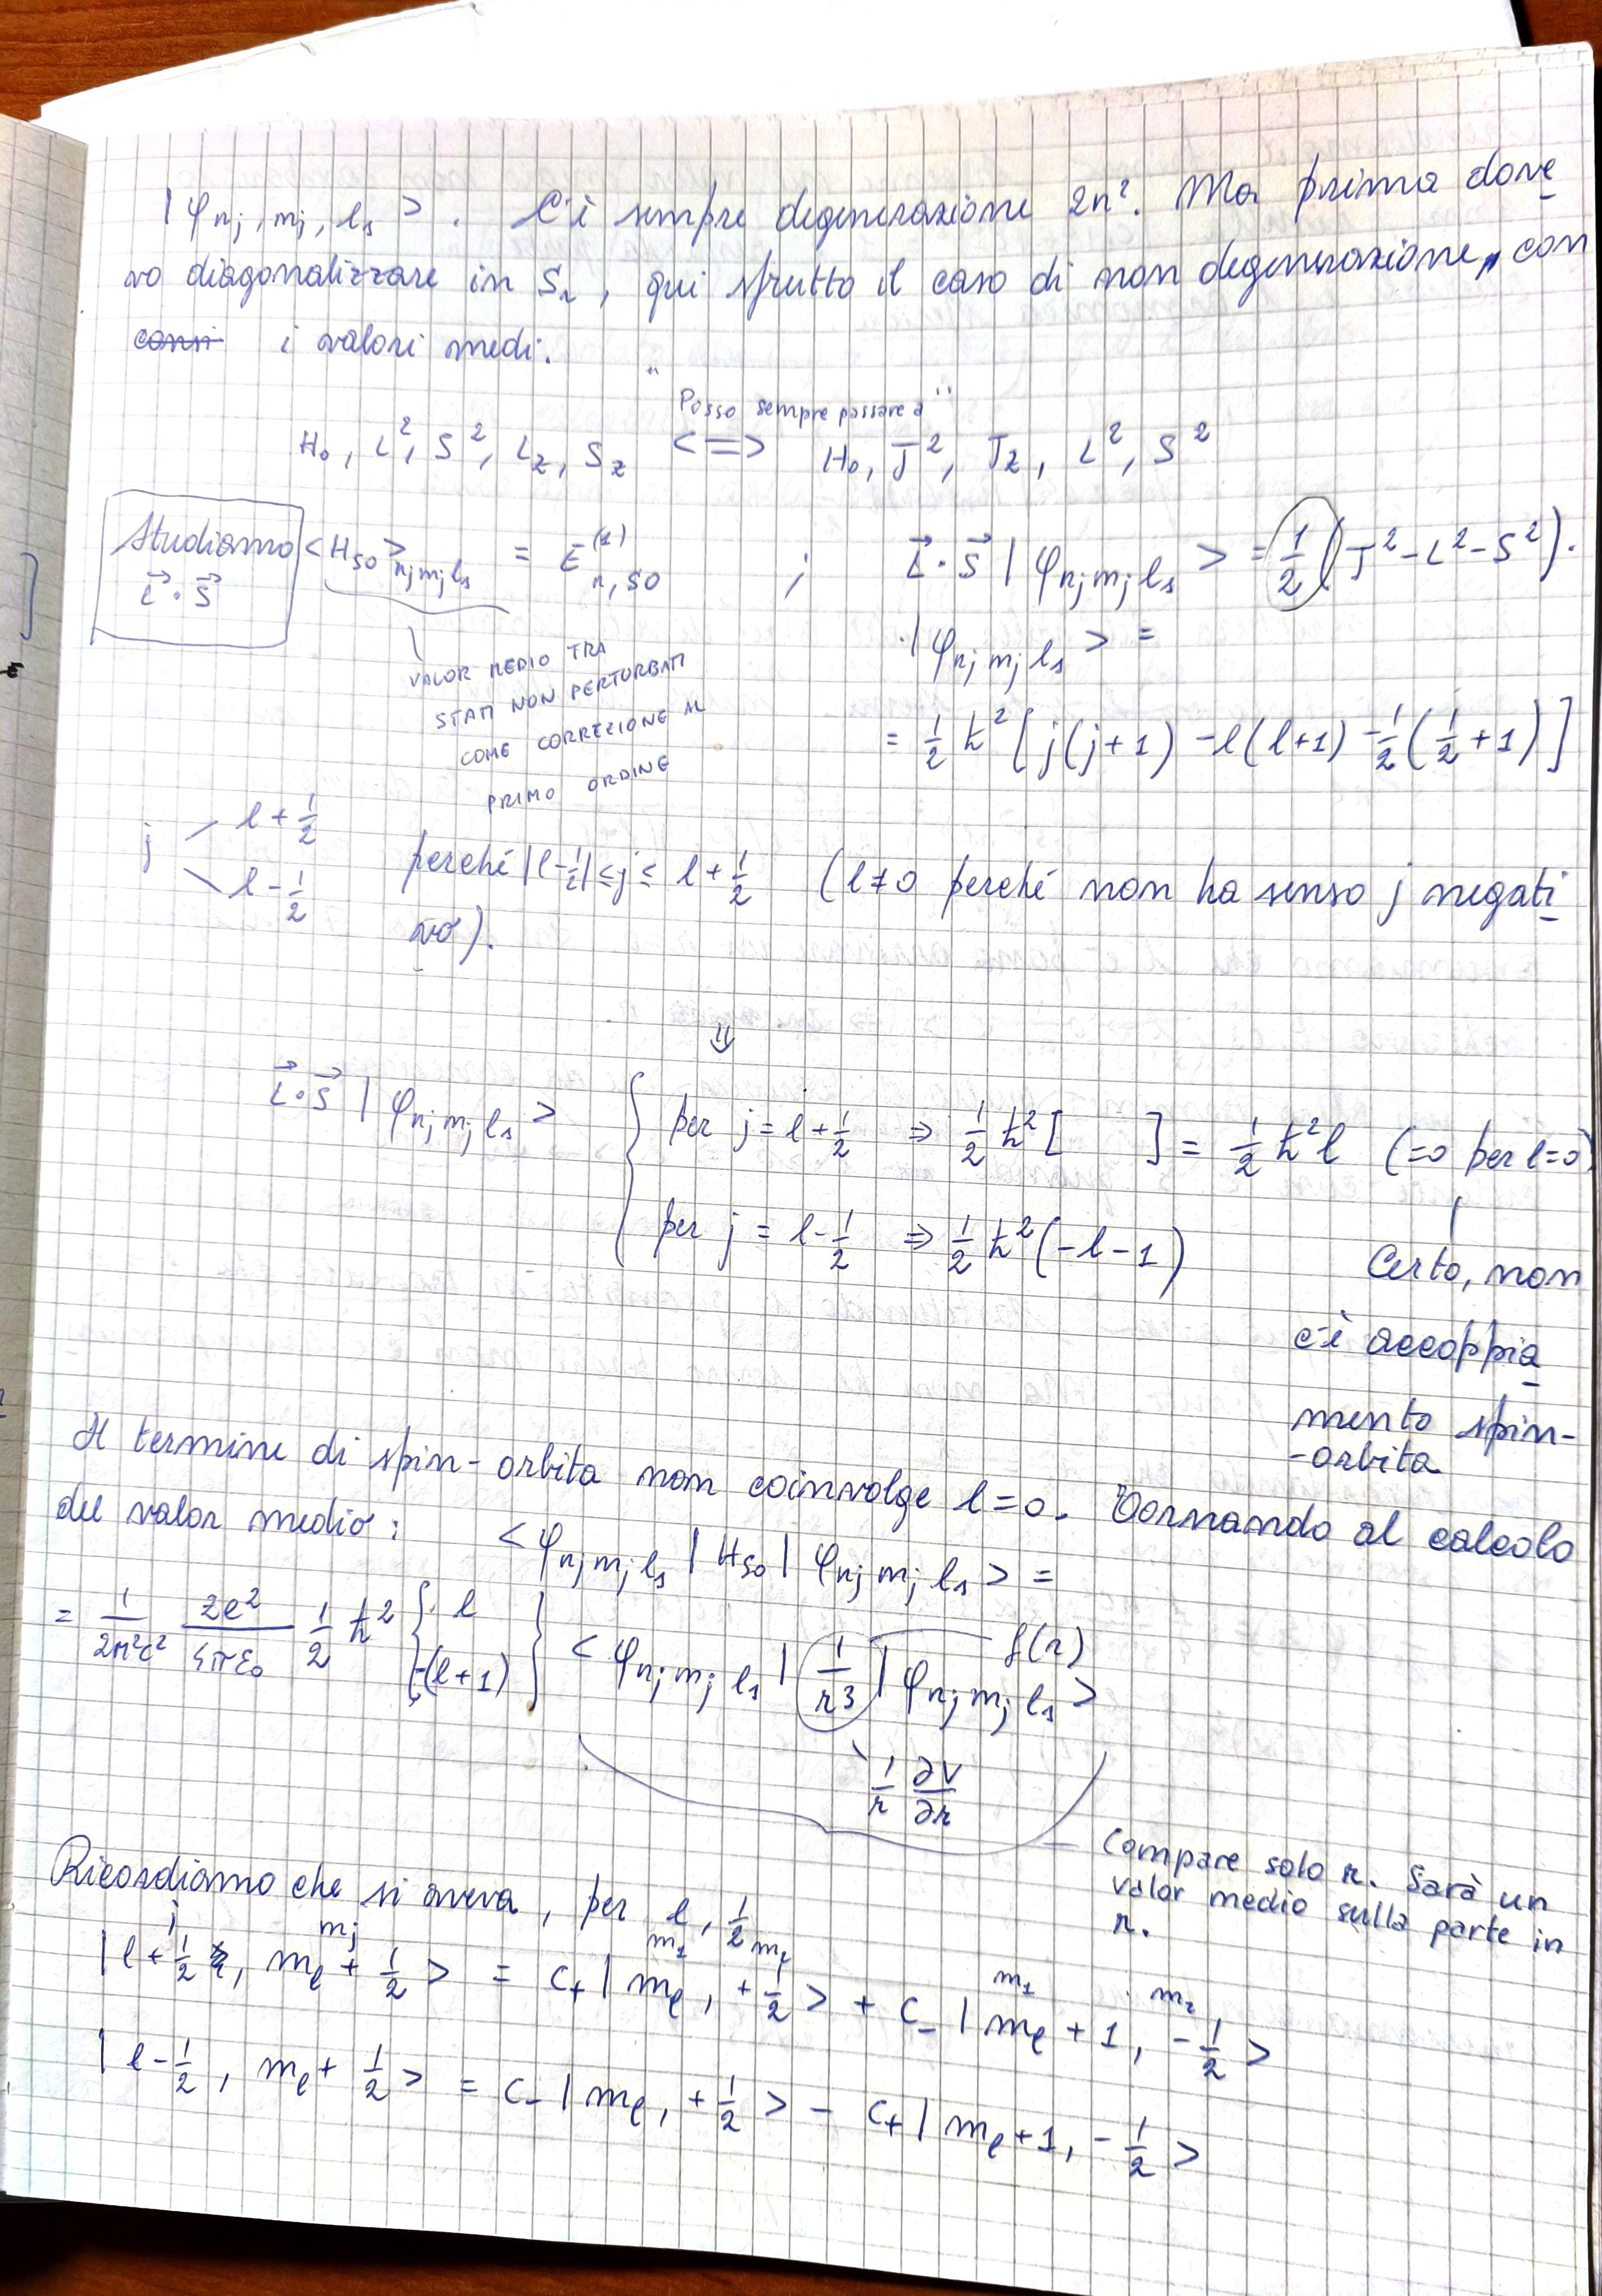 |φ_{n j, m_j, l s}>. C'è sempre degenerazione 2n². Ma prima dove
vo diagonalizzare in S_z, qui sfrutto il caso di non degenerazione, con
i valori medi.
"Posso sempre passare a"
H₀, L², S², L_z, S_z <=> H₀, J², J_z, L², S²
Studiamo L⃗·S⃗
<H_{SO}>_{n j m_j l s} = E^{(1)}_{n, SO} ; L⃗·S⃗ |φ_{n j m_j l s}> = 1/2 (J² - L² - S²)·
·|φ_{n j m_j l s}> =
VALOR MEDIO TRA
STATI NON PERTURBATI
COME CORREZIONE AL
PRIMO ORDINE
= 1/2 ħ² [j(j+1) - l(l+1) - 1/2(1/2+1)]
j l + 1/2
l - 1/2
perché |l - 1/2| ≤ j ≤ l + 1/2 (l≠0 perché non ha senso j negati
vo).
⇓
L⃗·S⃗ |φ_{n j m_j l s}> { per j = l + 1/2 ⇒ 1/2 ħ² [ ] = 1/2 ħ² l (=0 per l=0)
per j = l - 1/2 ⇒ 1/2 ħ² (-l-1)
Certo, non
c'è accoppia
mento spin-
-orbita
Il termine di spin-orbita non coinvolge l=0. Tornando al calcolo
del valor medio: <φ_{n j m_j l s} | H_{SO} | φ_{n j m_j l s}> =
= 1/(2M²c²) Ze²/(4πε₀) 1/2 ħ² { l -(l+1) } <φ_{n j m_j l s} | 1/r³ | φ_{n j m_j l s}>
f(r)
1/r ∂V/∂r
Compare solo r. Sarà un
valor medio sulla parte in
r.
Ricordiamo che si aveva, per l, 1/2
j m_j m_1 m_2 m_1 m_2
|l + 1/2, m_l + 1/2> = C_+ |m_l, +1/2> + C_- |m_l + 1, -1/2>
|l - 1/2, m_l + 1/2> = C_- |m_l, +1/2> - C_+ |m_l + 1, -1/2>